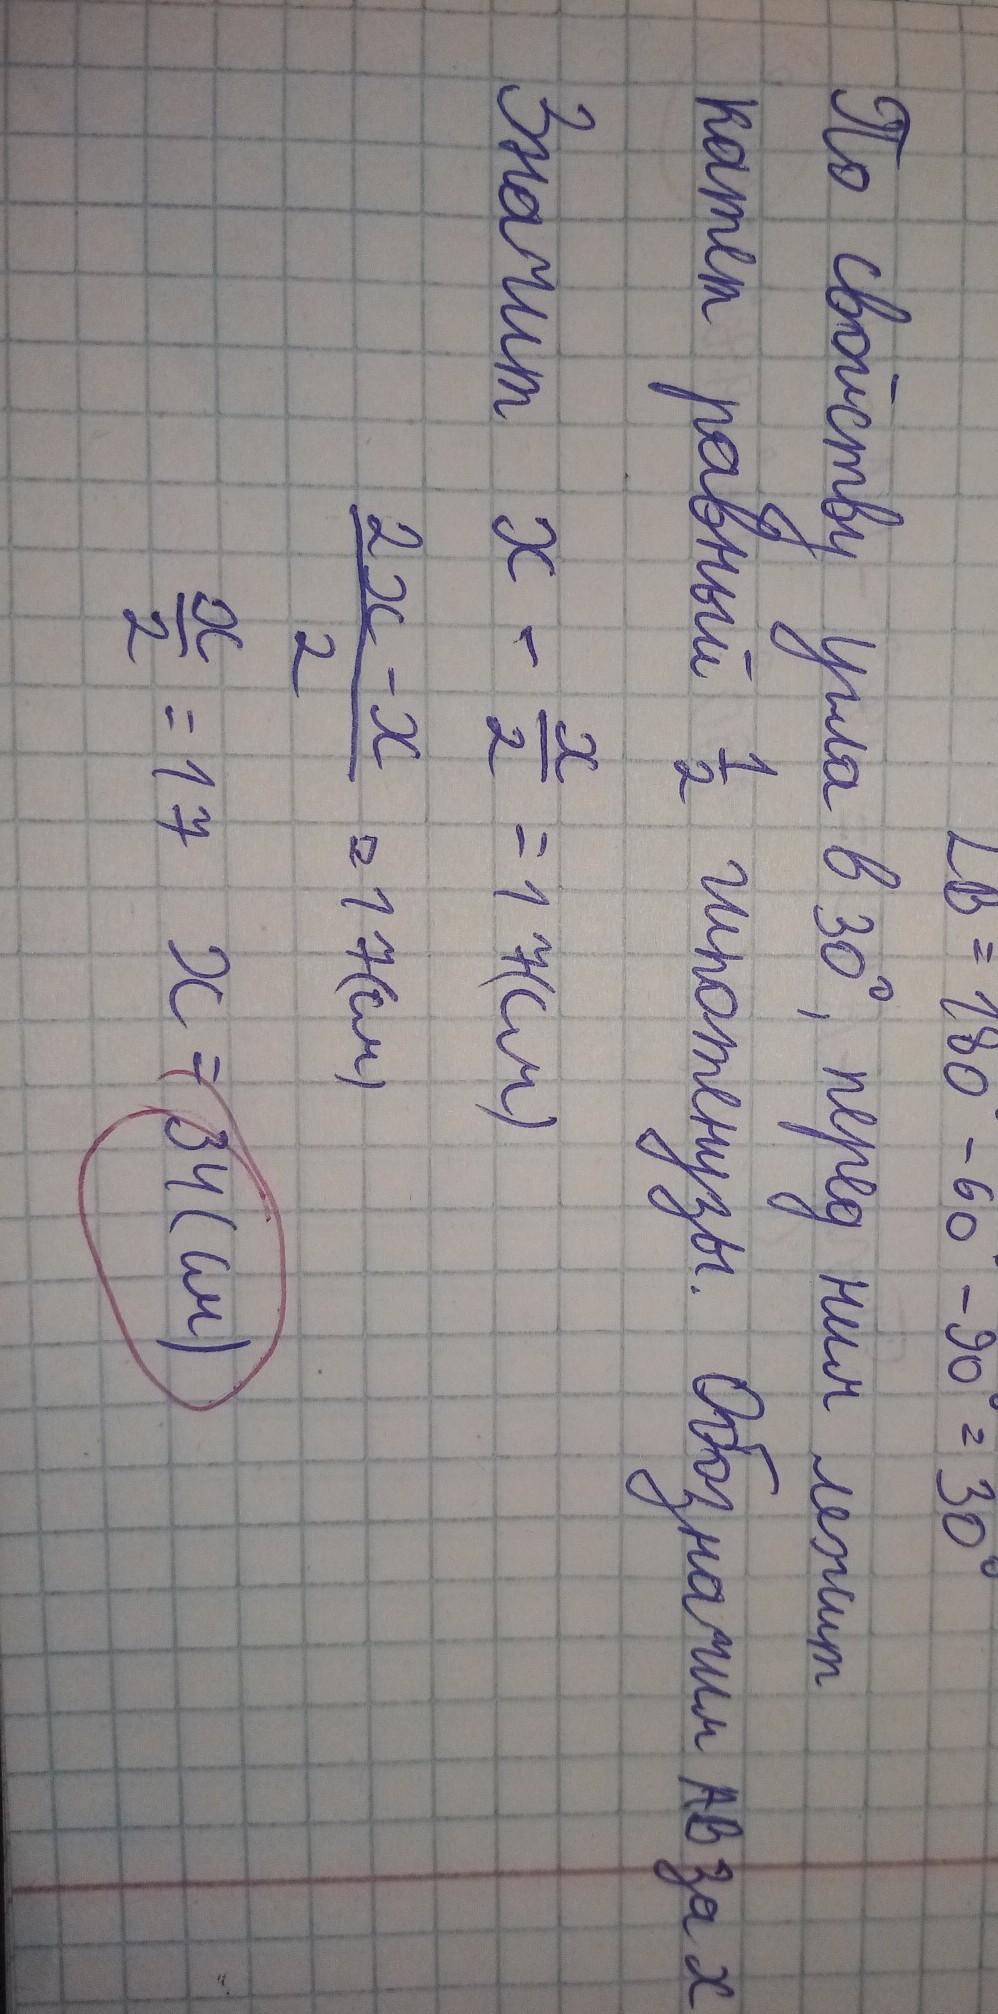 ∠B = 180° - 60° - 90° = 30°
По свойству угла в 30°, перед ним лежит
катет равный 1/2 гипотенузы. Обозначим AB за x
Значит x - x/2 = 17(см)
(2x - x)/2 = 17(см)
x/2 = 17 x = 34(см)